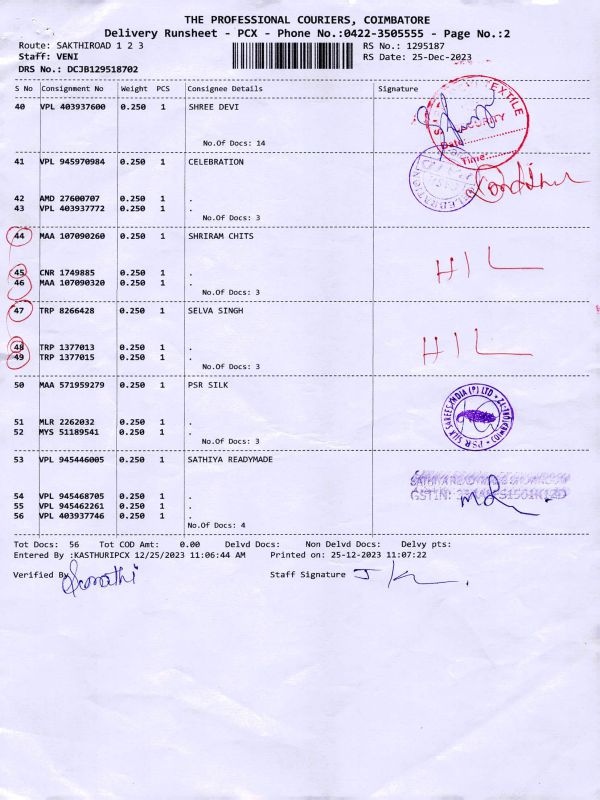 THE PROFESSIONAL COURIERS, COIMBATORE
Delivery Runsheet - PCX - Phone No.:0422-3505555 - Page No.:2
Route: SAKTHIROAD 1 2 3 RS No.: 1295187
Staff: VENI RS Date: 25-Dec-2023
DRS No.: DCJB129518702
S No Consignment No Weight PCS Consignee Details Signature
40 VPL 403937600 0.250 1 SHREE DEVI
TEXTILE
SECURITY
Date:
No.Of Docs: 14
Time:
41 VPL 945970984 0.250 1 CELEBRATION
42 AMD 27600707 0.250 1 .
43 VPL 403937772 0.250 1 .
No.Of Docs: 3
44 MAA 107090260 0.250 1 SHRIRAM CHITS
HIL
45 CNR 1749885 0.250 1 .
46 MAA 107090320 0.250 1 .
No.Of Docs: 3
47 TRP 8266428 0.250 1 SELVA SINGH
HIL
48 TRP 1377013 0.250 1 .
49 TRP 1377015 0.250 1 .
No.Of Docs: 3
50 MAA 571959279 0.250 1 PSR SILK
PSR SILK SAREES INDIA (P) LTD
51 MLR 2262032 0.250 1 .
52 MYS 51189541 0.250 1 .
No.Of Docs: 3
53 VPL 945446005 0.250 1 SATHIYA READYMADE
54 VPL 945468705 0.250 1 .
55 VPL 945462261 0.250 1 .
56 VPL 403937746 0.250 1 .
No.Of Docs: 4
Tot Docs: 56 Tot COD Amt: 0.00 Delvd Docs: Non Delvd Docs: Delvy pts:
Entered By :KASTHURIPCX 12/25/2023 11:06:44 AM Printed on: 25-12-2023 11:07:22
Verified By Staff Signature